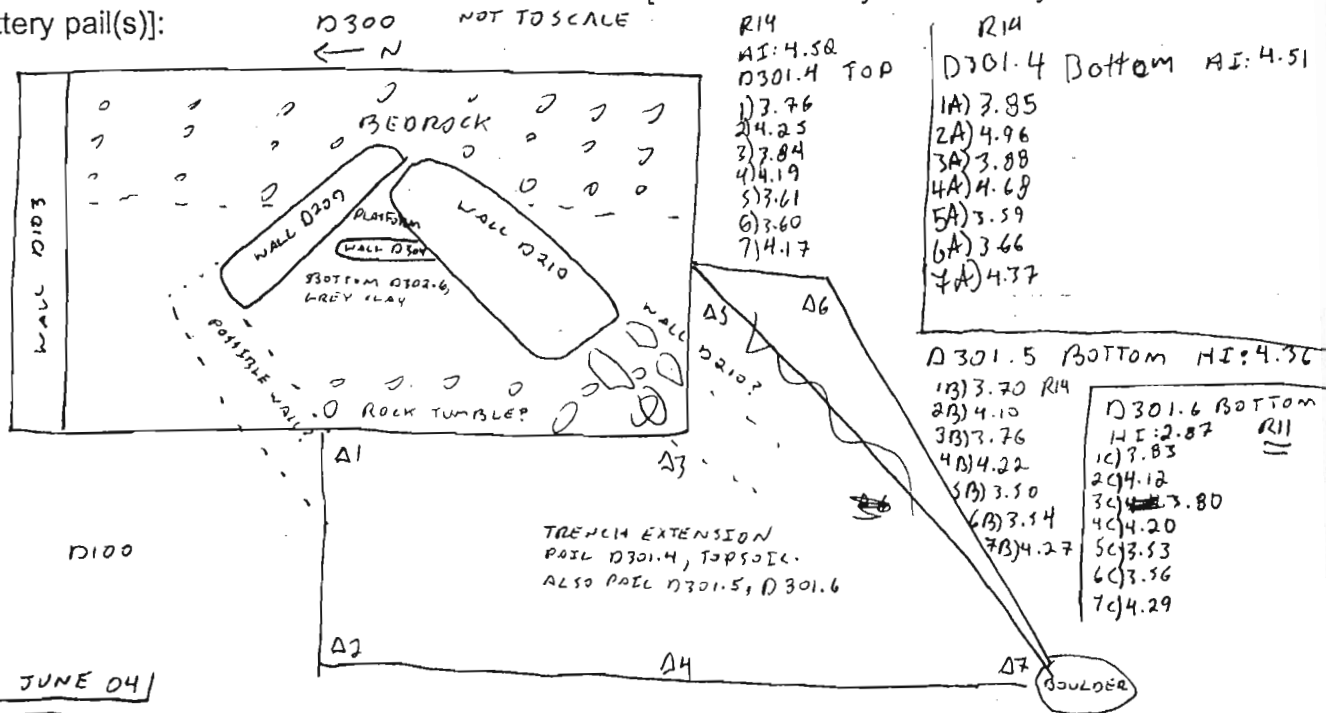 ttery pail(s)]:
D300
NOT TO SCALE
← N
BEDROCK
WALL D103
WALL D209
PLATFORM
WALL D304
WALL D210
BOTTOM D302.6,
GREY CLAY
POSSIBLE WALL?
WALL D210?
ROCK TUMBLE?
Δ1
Δ3
Δ5
Δ6
Δ2
Δ4
Δ7
BOULDER
D100
TRENCH EXTENSION
PAIL D301.4, TOPSOIL.
ALSO PAIL D301.5, D301.6
JUNE 04
R14
HI: 4.52
D301.4 TOP
1) 3.76
2) 4.25
3) 3.84
4) 4.19
5) 3.61
6) 3.60
7) 4.17
R14
D301.4 Bottom HI: 4.51
1A) 3.85
2A) 4.96
3A) 3.88
4A) 4.68
5A) 3.59
6A) 3.66
7A) 4.37
D301.5 BOTTOM HI: 4.36
1B) 3.70 R14
2B) 4.10
3B) 3.76
4B) 4.22
5B) 3.50
6B) 3.54
7B) 4.27
D301.6 BOTTOM
HI: 2.87 R11
1C) 3.83
2C) 4.12
3C) 3.80
4C) 4.20
5C) 3.53
6C) 3.56
7C) 4.29